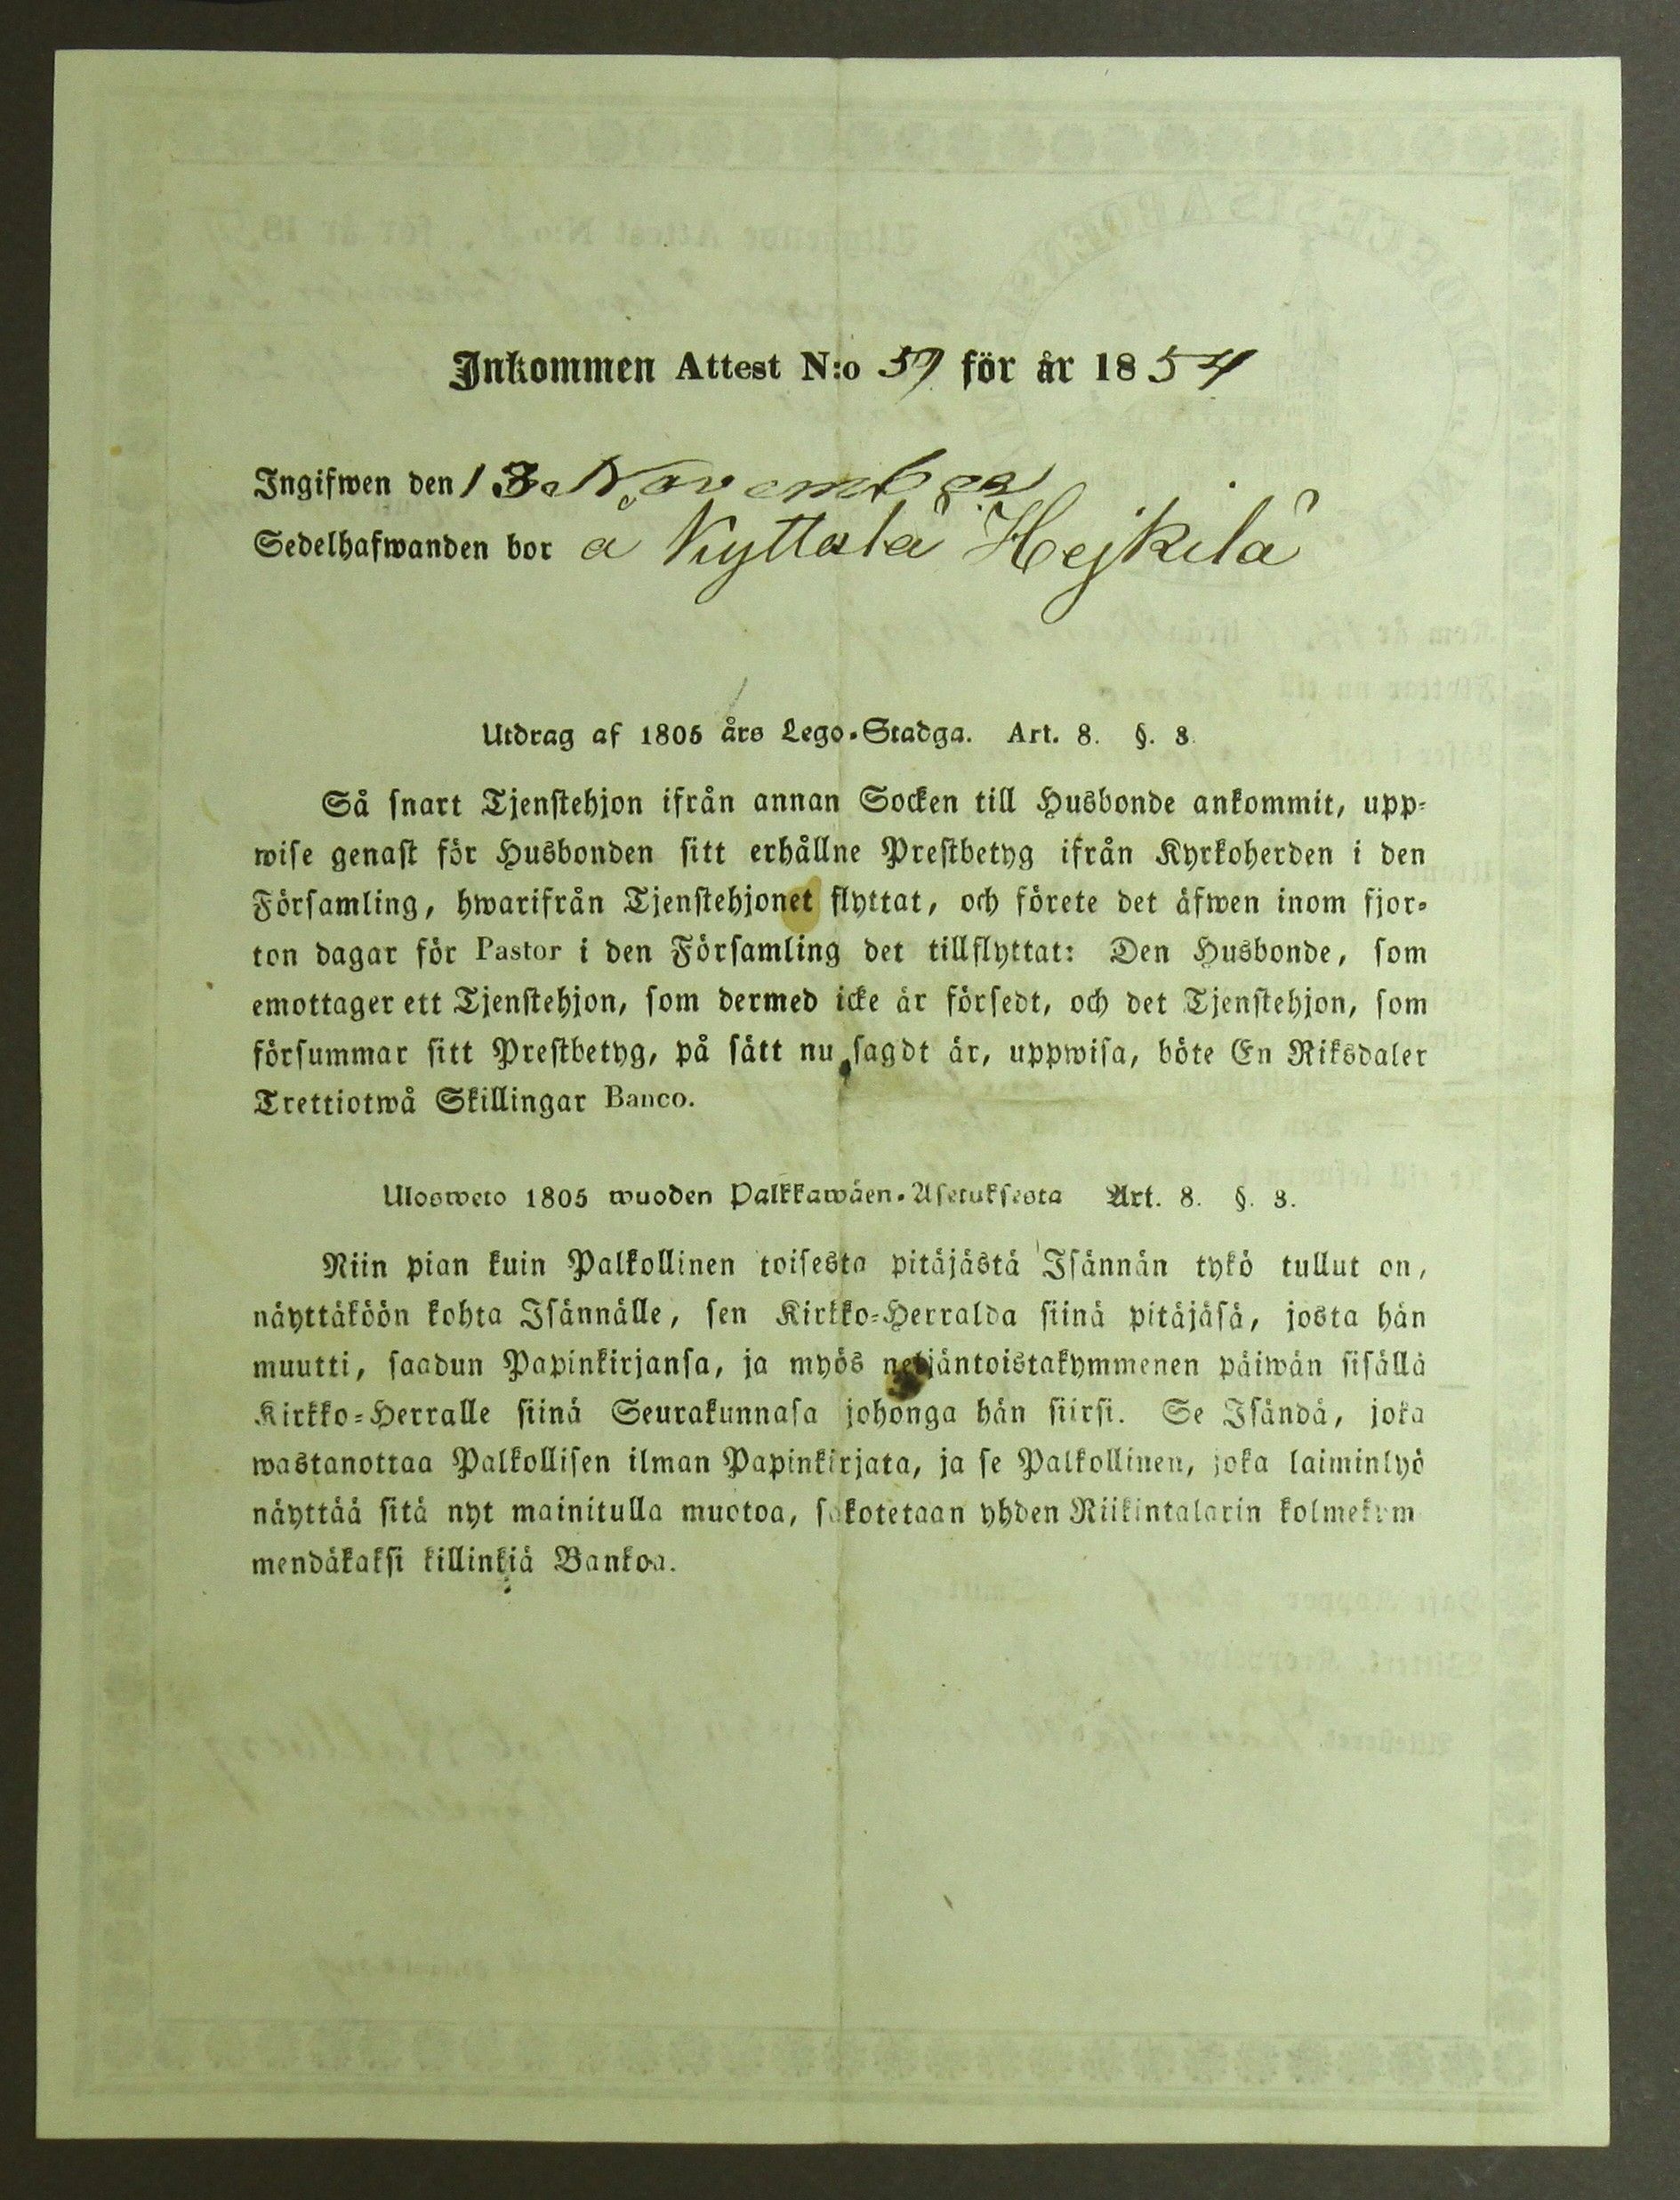 Inkommen Attest N:o 59 för år 1854
Ingifwen den 13 November
Sedelhafwanden bor å Kyttälä Hejkilä
Utdrag af 1805 års Lego-Stadga. Art. 8. §. 3.
Så snart Tjenstehjon ifrån annan Socken till Husbonde ankommit, upp-
wise genast för Husbonden sitt erhållne Prestbetyg ifrån Kyrkoherden i den
Församling, hwarifrån Tjenstehjonet flyttat, och förete det äfwen inom fjor-
ton dagar för Pastor i den Församling det tillflyttat: Den Husbonde, som
emottager ett Tjenstehjon, som dermed icke är försedt, och det Tjenstehjon, som
försummar sitt Prestbetyg, på sätt nu sagdt är, uppwisa, böte En Riksdaler
Trettiotwå Skillingar Banco.
Ulosweto 1805 wuoden Palkkawäen-Asetuksesta Art. 8. §. 3.
Niin pian kuin Palkollinen toisesta pitäjästä Isännän tykö tullut on,
näyttäköön kohta Isännälle, sen Kirkko-Herralda siinä pitäjäsä, josta hän
muutti, saadun Papinkirjansa, ja myös neljäntoistakymmenen päiwän sisällä
Kirkko-Herralle siinä Seurakunnasa johonga hän siirsi. Se Isändä, joka
wastanottaa Palkollisen ilman Papinkirjata, ja se Palkollinen, joka laiminlyö
näyttää sitä nyt mainitulla muotoa, sakotetaan yhden Riikintalarin kolmekym
mendäkaksi killinkiä Bankoa.